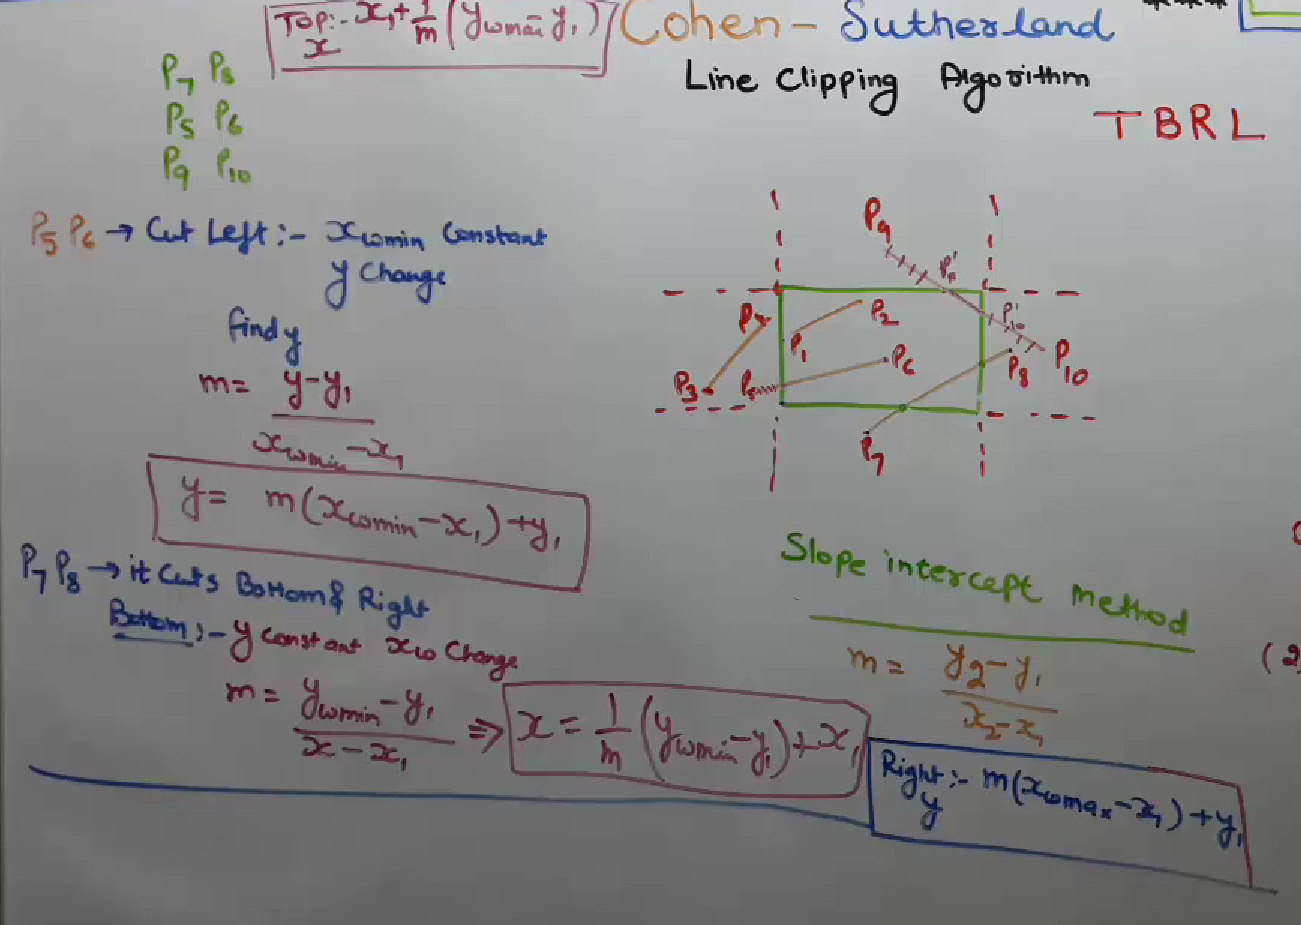 Top:- x₁+1/m(ywmax-y₁)
x
Cohen- Sutherland
Line Clipping Algorithm
TBRL
P₇ P₈
P₅ P₆
P₉ P₁₀
P₅ P₆ → Cut Left :- xwmin Constant
y Change
find y
m= y-y₁ / xwmin-x₁
y= m(xwmin-x₁)+y₁
P₇ P₈ → it Cuts Bottom & Right
Bottom:- y constant xw Change
m= ywmin-y₁ / x-x₁ ⇒ x= 1/m (ywmin-y₁)+x₁
P₉
P₉'
P₂
P₁₀'
P₁
P₆
P₈
P₁₀
P₃
P₅
P₇
Slope intercept method
m= y₂-y₁ / x₂-x₁
Right:- m(xwmax-x₁)+y₁
y
(2